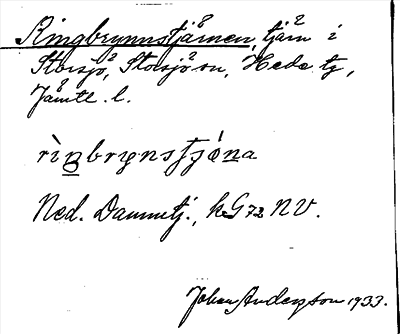 Ringbrynnstjärnen, tjärn i
Storsjö, Storsjö sn, Hede tg,
Jämtl. l.
rìŋbrynstjǿ̱na
Ned. Dammtj., kG 72 NV.
Johan Andersson 1933.